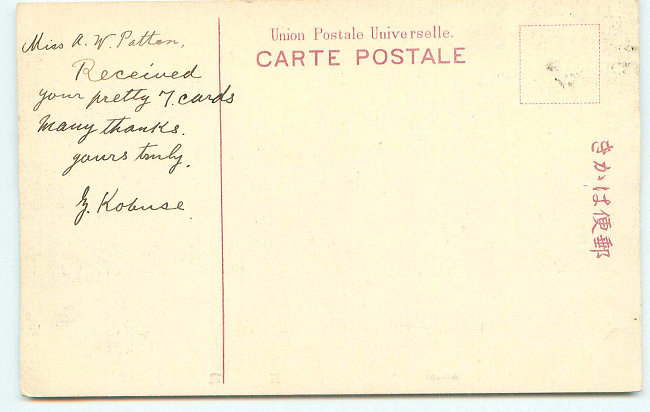 Miss A. W. Patten,
Received
your pretty 7 cards
Many thanks.
yours truly,
Y. Kobuse
Union Postale Universelle.
CARTE POSTALE
きかは便郵